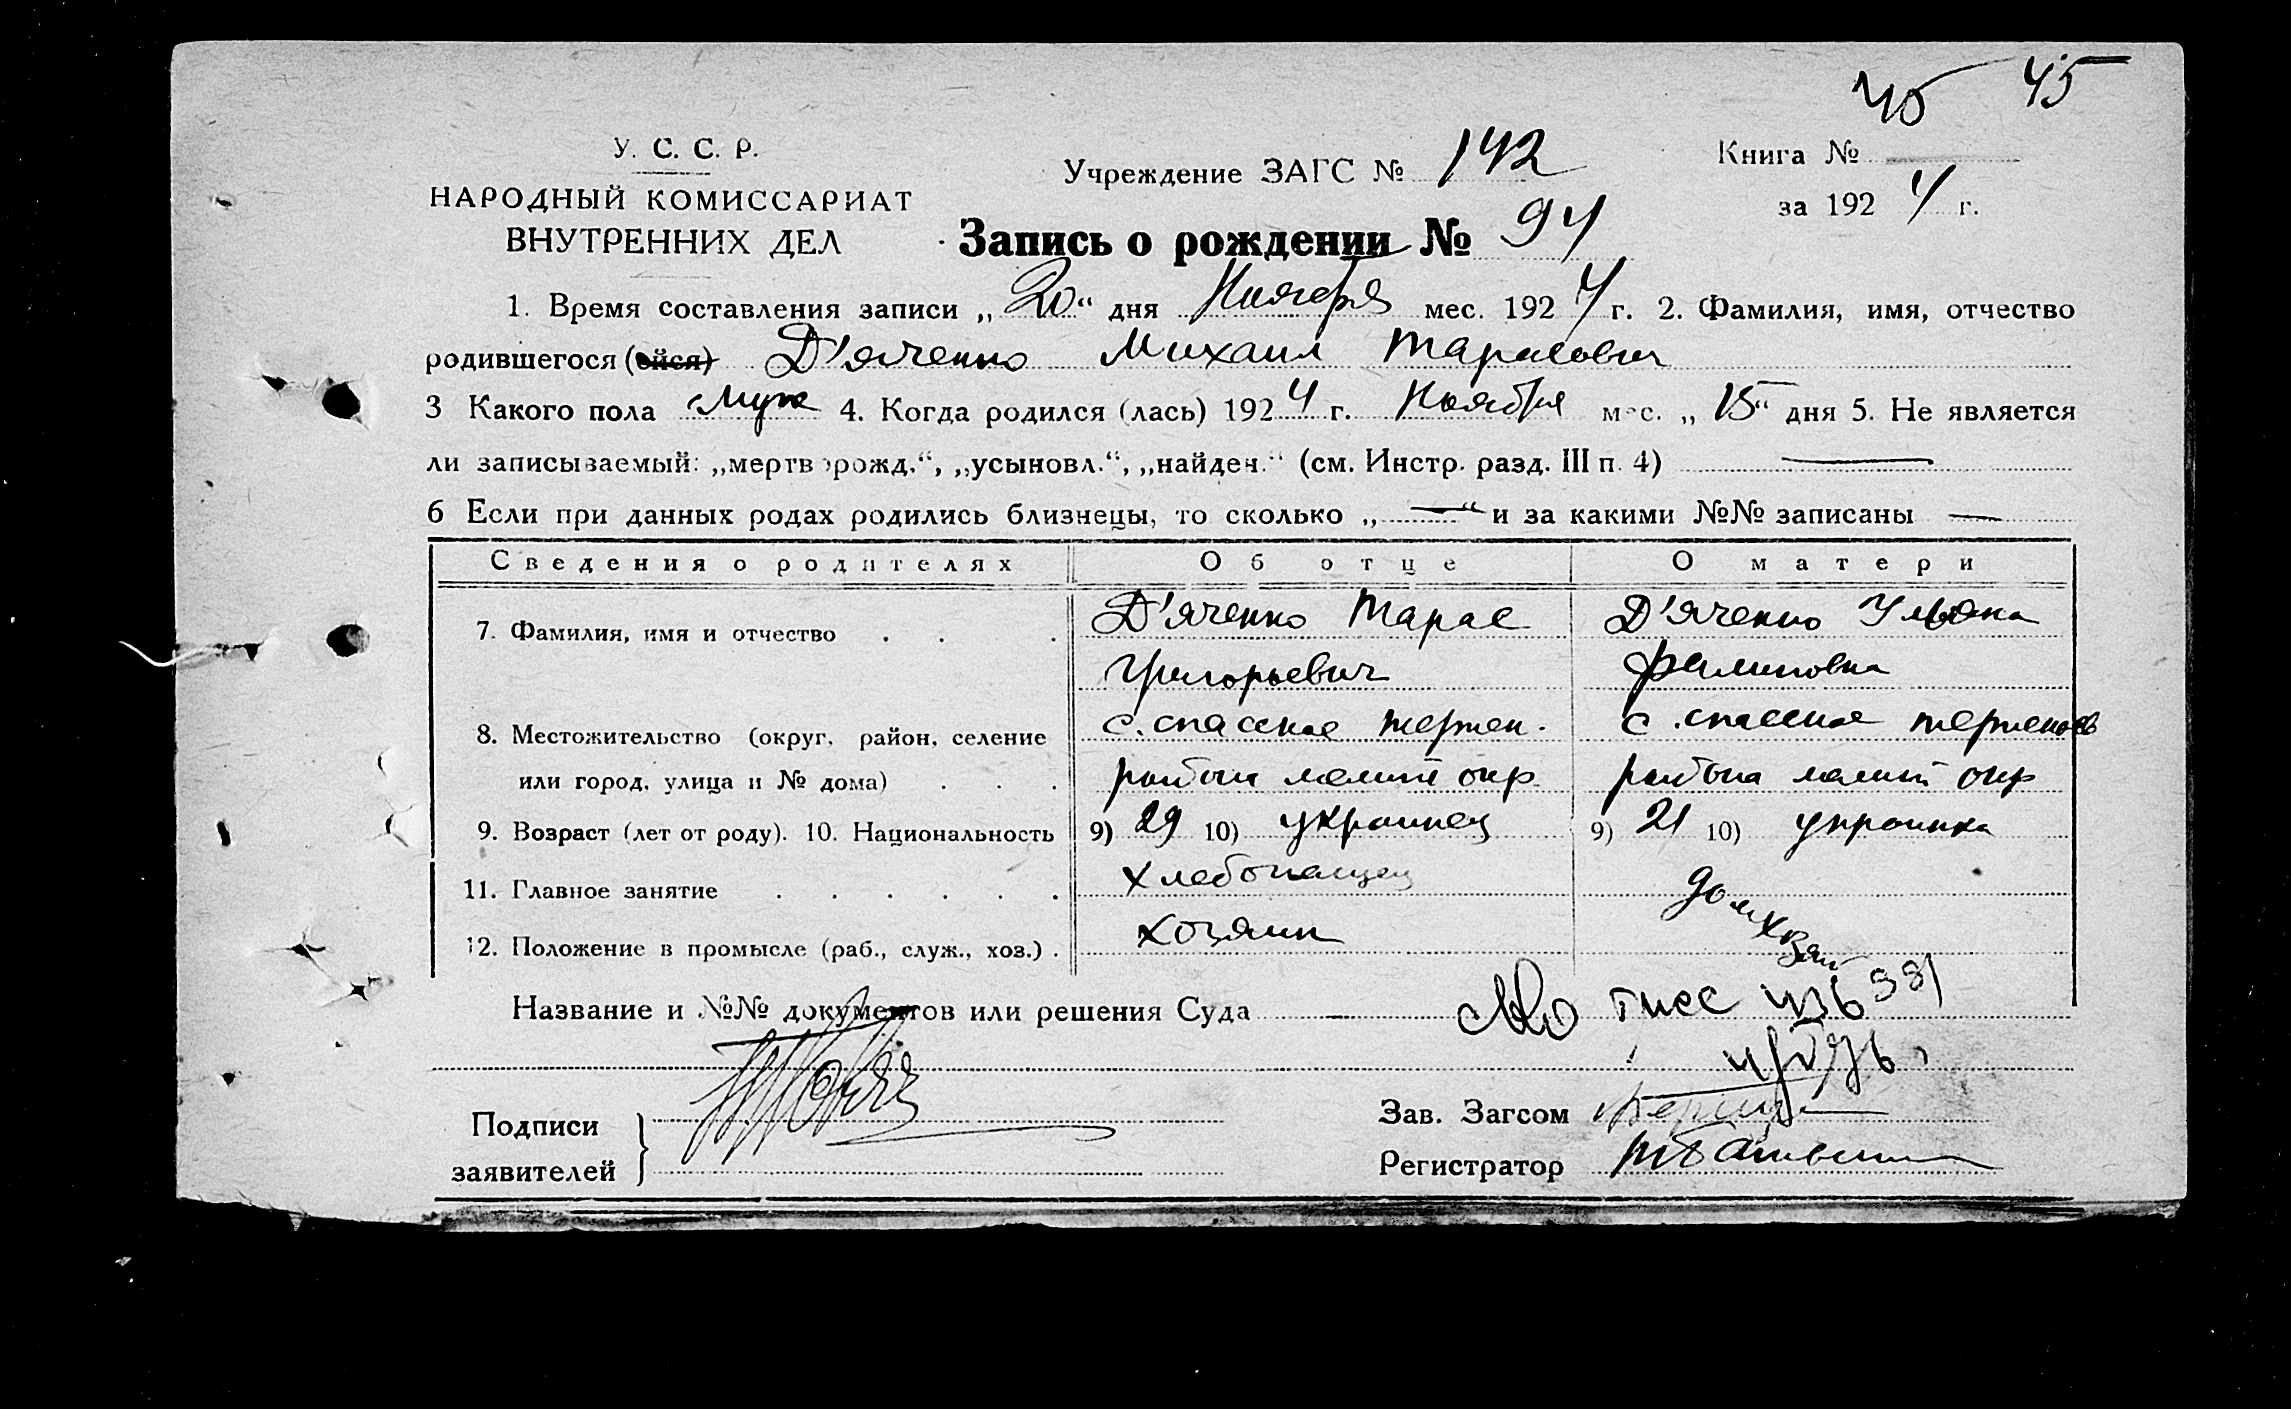 45 45
У. С. С. Р.
НАРОДНЫЙ КОМИССАРИАТ
ВНУТРЕННИХ ДЕЛ
Учреждение ЗАГС № 142
Книга №
за 1924 г.
Запись о рождении № 94
1. Время составления записи „20“ дня Ноября мес. 1924 г. 2. Фамилия, имя, отчество
родившегося (ейся) Д'яченко Михаил Тарасович
3 Какого пола муж 4. Когда родился (лась) 1924 г. Ноября мес. „15“ дня 5. Не является
ли записываемый: „мертворожд.“, „усыновл.“, „найден.“ (см. Инстр. разд. III п. 4) —
6 Если при данных родах родились близнецы, то сколько „—“ и за какими №№ записаны —
Сведения о родителях Об отце О матери
7. Фамилия, имя и отчество . . . Д'яченко Тарас Д'яченко Ульяна
Григорьевич Филиповна
8. Местожительство (округ, район, селение с. спасское терпен. с. спасское
или город, улица и № дома) . . . района мелит окр. района мелит окр
9. Возраст (лет от роду). 10. Национальность 9) 29 10) украинец 9) 21 10) украинка
11. Главное занятие . . . . . . хлебопашец домхозяй
12. Положение в промысле (раб., служ., хоз.) . хозяин
Название и №№ документов или решения Суда —
Подписи
заявителей
Зав. Загсом
Регистратор